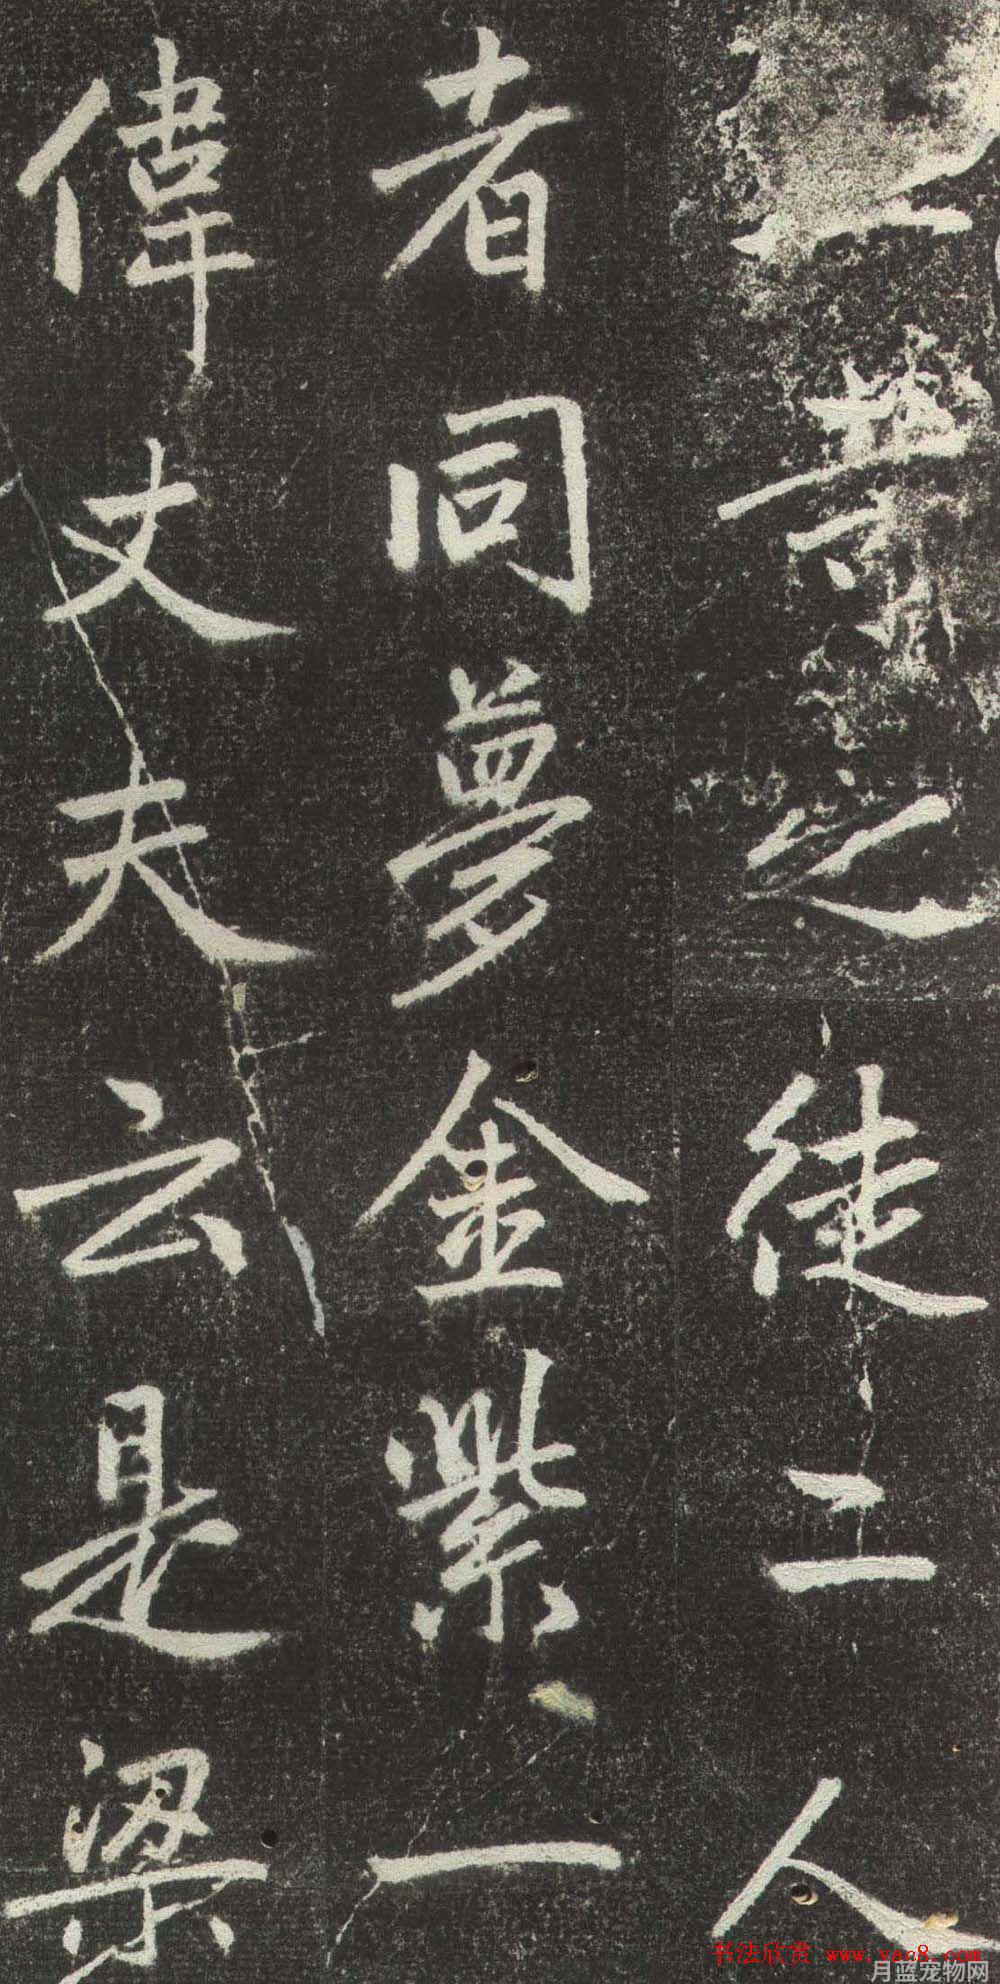 之徒二人
者同夢金紫一
偉丈夫云是梁
书法欣赏 www.yac8.com
月蓝宠物网